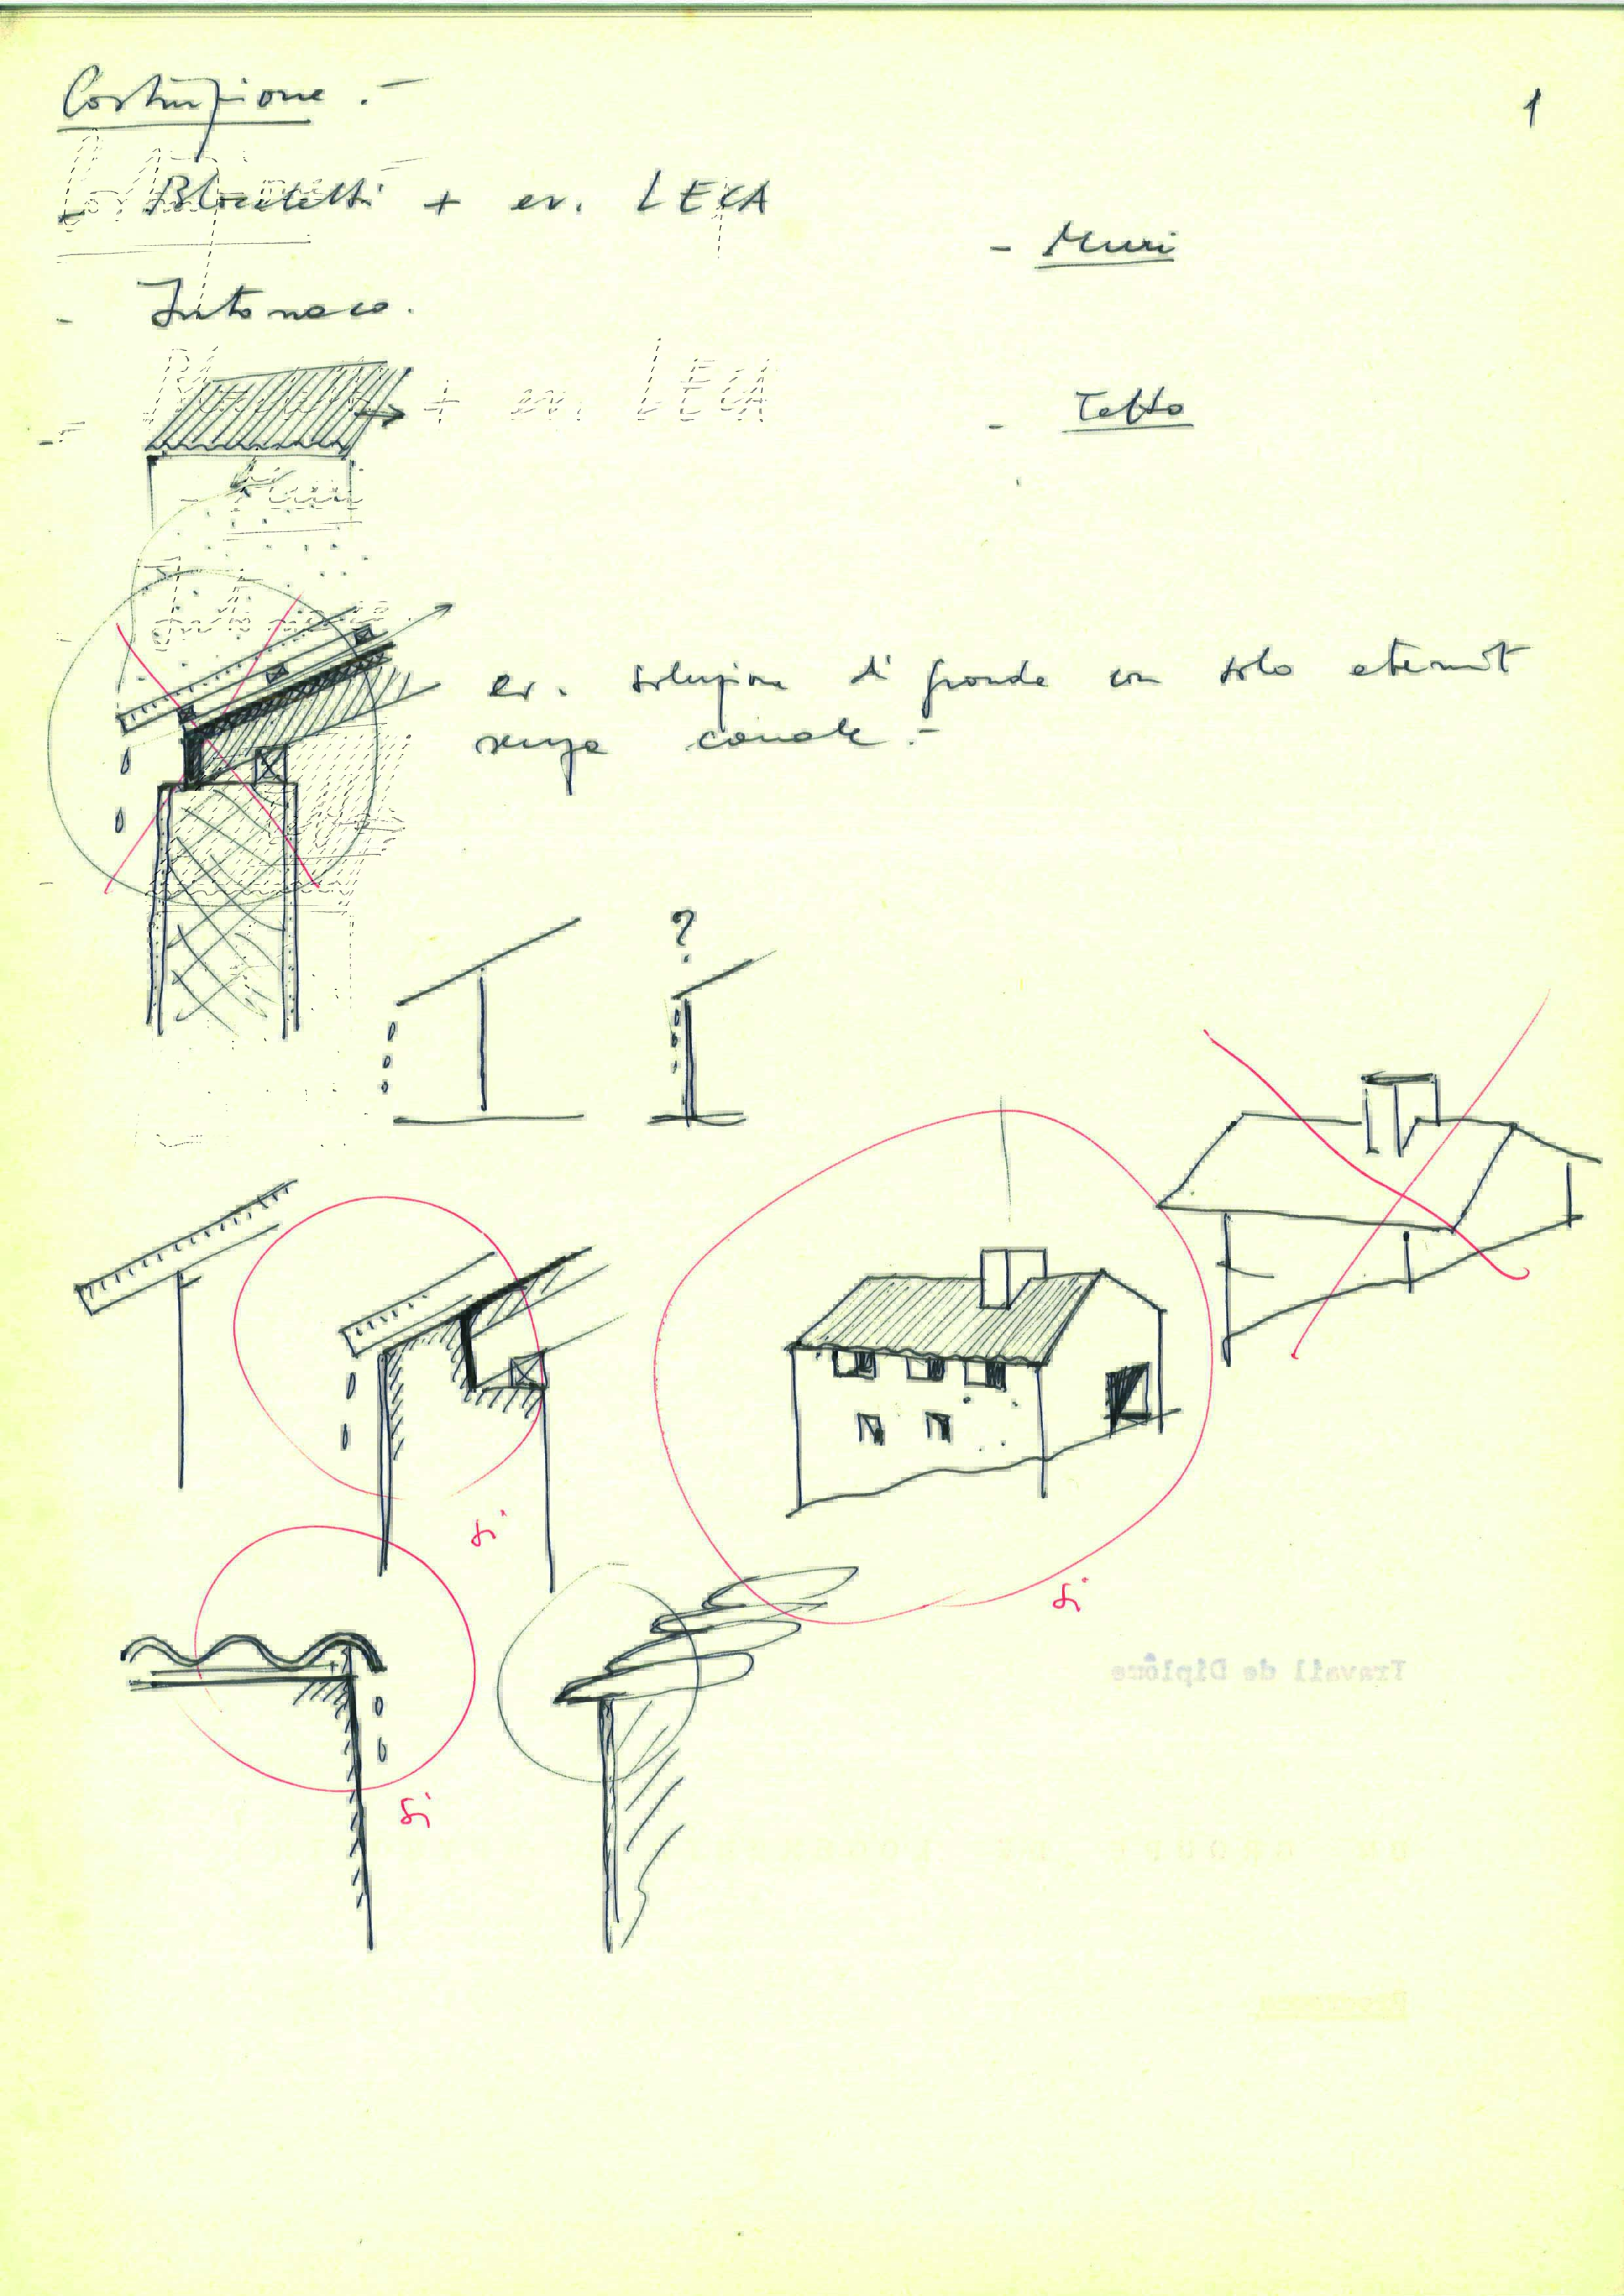 Costruzione .-
1
- Blocchetti + ev. LECA
- Muri
- Intonaco.
- Tetto
ev. soluzione di gronda con solo eternit
senza canale .-
?
si
si
si
Travail de Diplôme